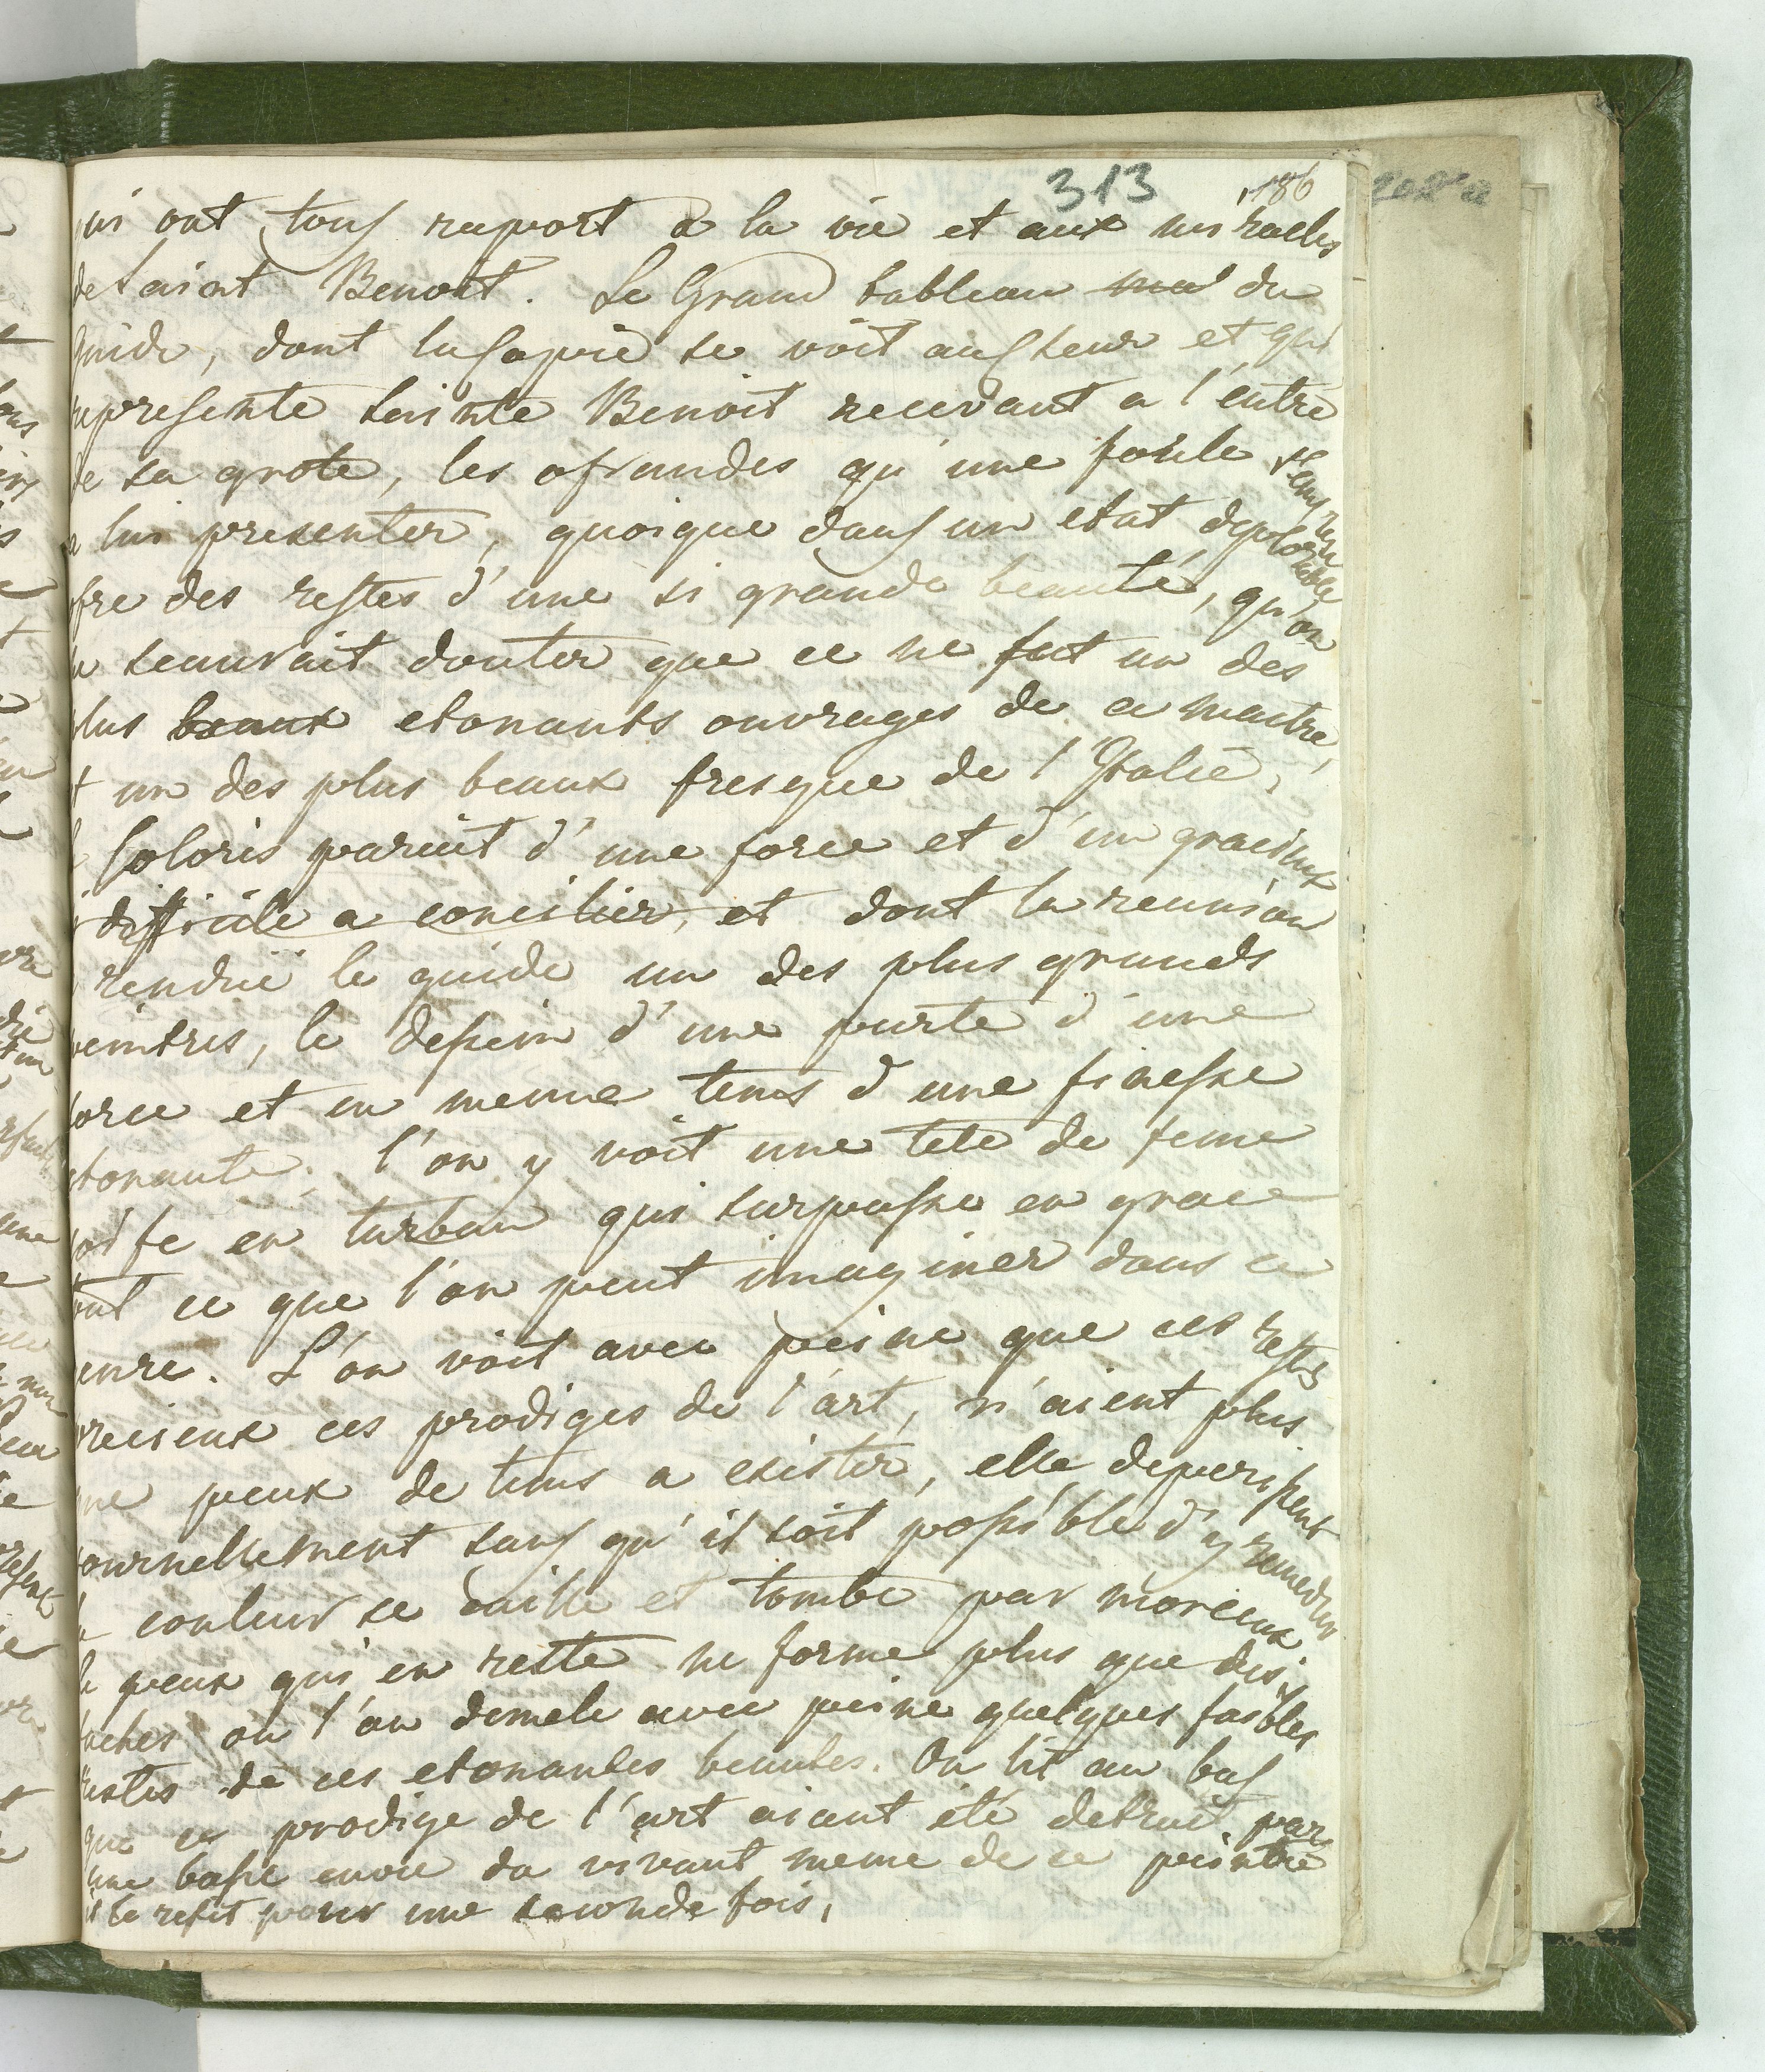 313 186
qui ont tous raport a la vie et aux miracles
de Saint Benoit. Le Grand tableau du
Guide, dont la copie se voit ausseur et qui
represente sainte Benoit recevant a l'entre
de sa grote, les ofrandes qu'une foule
lui presenter, quoique dans un etat deplorable
ofre des restes d'une si grande beauté, qu'on
ne scauroit douter que ce ne fut un des
plus beaux etonants ouvrages de ce maitre,
et un des plus beaux fresque de l'Italie,
le Coloris parait d'une force et d'un gracieux
difficile a concilier, et dont la reunion
rendüe le guide un des plus grands
peintres, le dessein d'une purte d'une
force et en meme tems d'une finesse
etonante; l'on y voit une tete de feme
coifé en turban qui surpasse en grace
tout ce que l'on peut imaginer dans ce
genre. L'on voit avec peine que ces restes
precieux ces prodiges de l'art, n'aient plus
que peux de tems a exister, elle deperissent
journellement sans qu'il soit possible d'y remedier
la couleur se caille et tombe par morceux
le peux qui en reste ne forme plus que des
taches ou l'on demele avec peine quelques faibles
restes de ces etonantes beautes. On lit au bas
que ce prodige de l'art aiant été detruit par
une basse envie du vivant meme de ce peintre
il le refit pour une seconde fois,